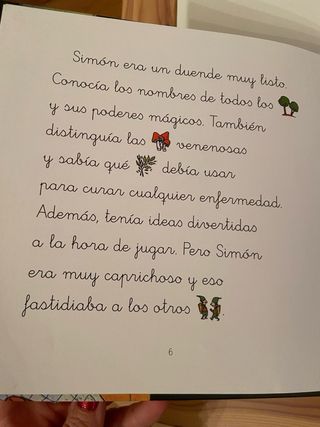 Simón era un duende muy listo.
Conocía los nombres de todos los
y sus poderes mágicos. También
distinguía las venenosas
y sabía qué debía usar
para curar cualquier enfermedad.
Además, tenía ideas divertidas
a la hora de jugar. Pero Simón
era muy caprichoso y eso
fastidiaba a los otros .
6